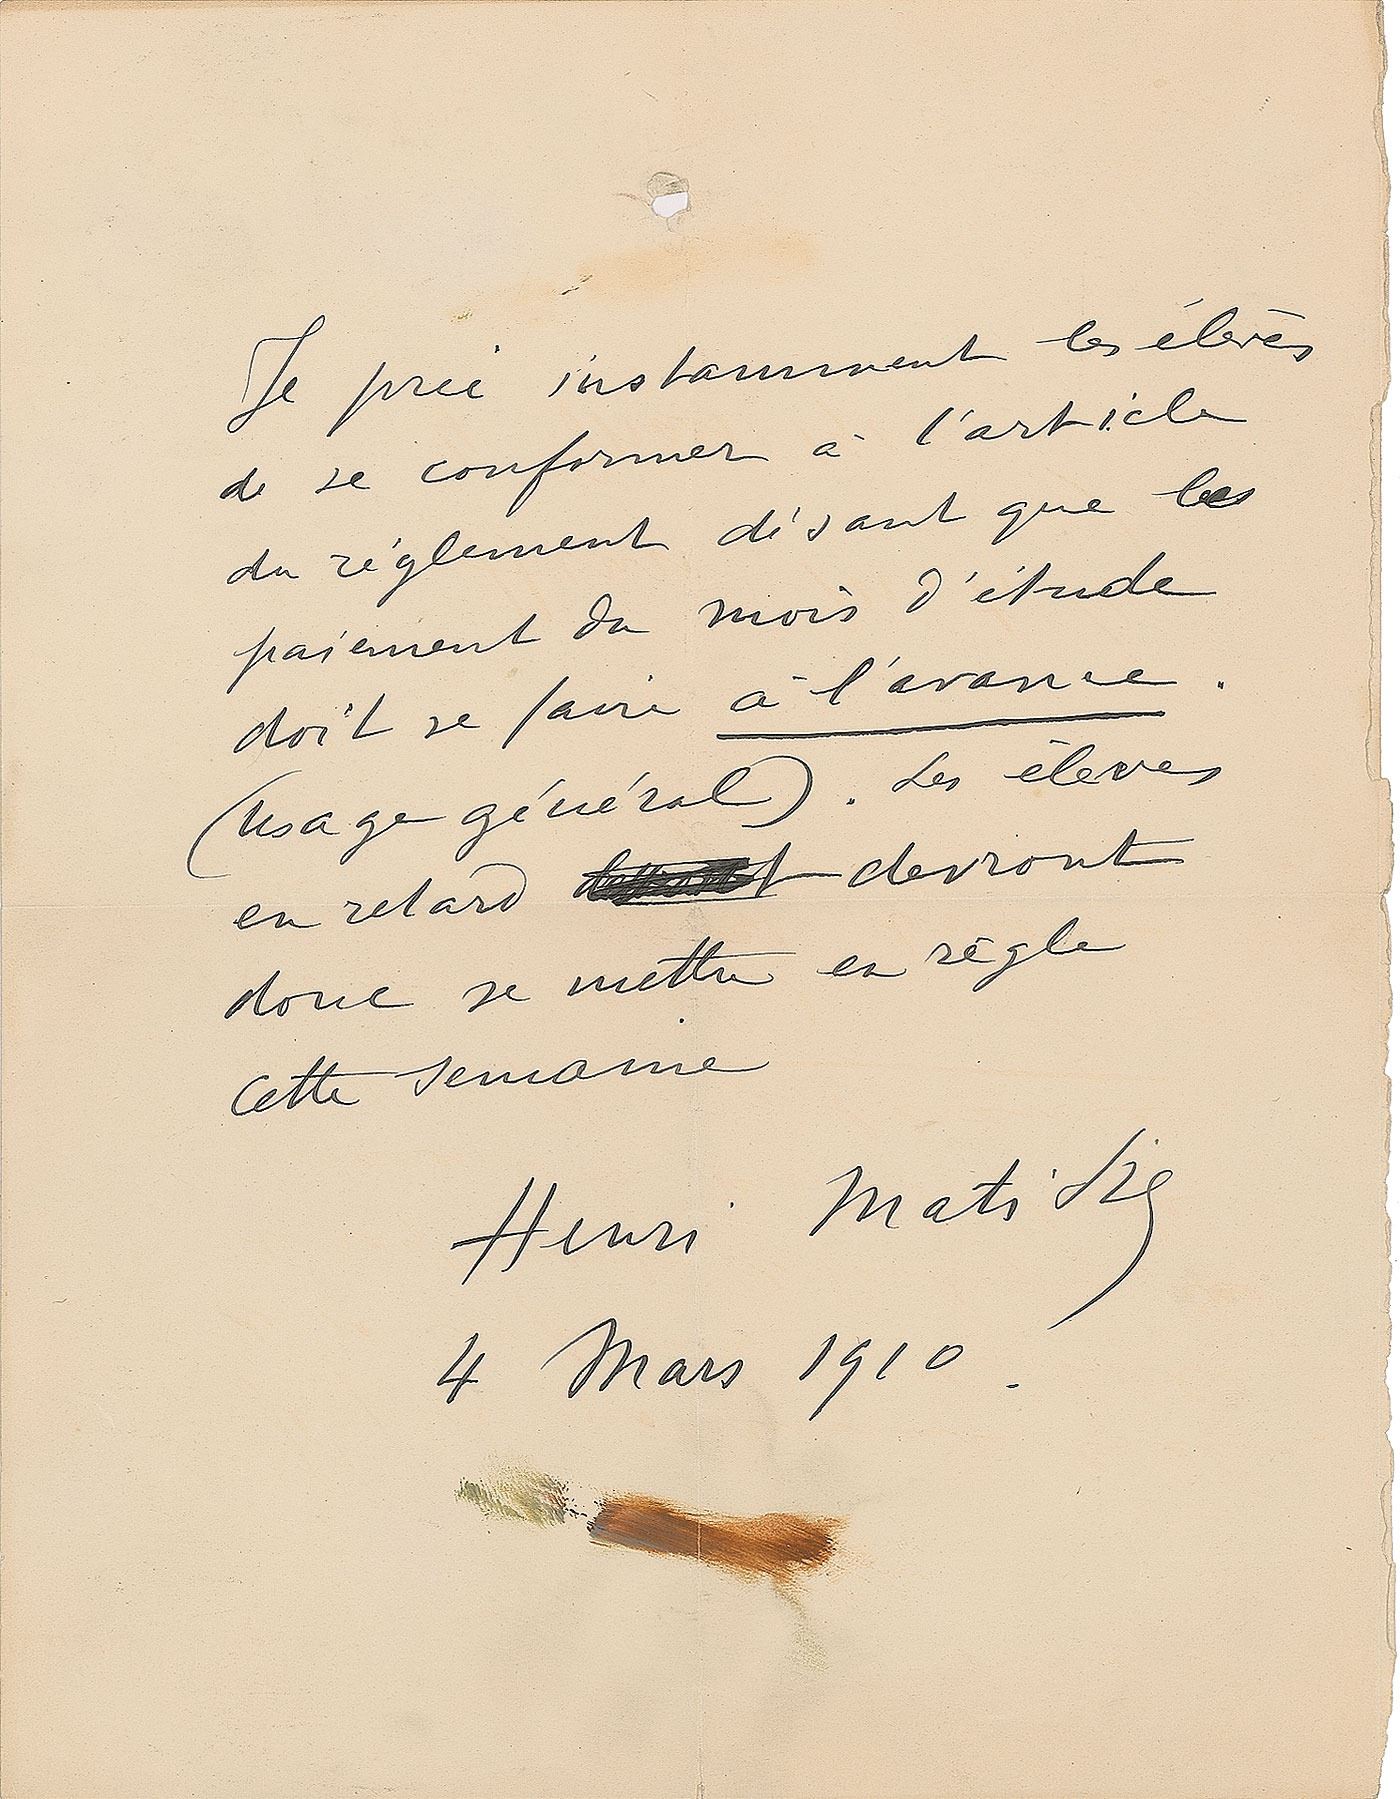 Je prie instamment les élèves
de se conformer à l'article
du réglement disant que le
paiement du mois d'étude
doit se faire à l'avance.
(usage général). Les élèves
en retard devront
donc se mettre en règle
cette semaine
Henri Matisse
4 Mars 1910.